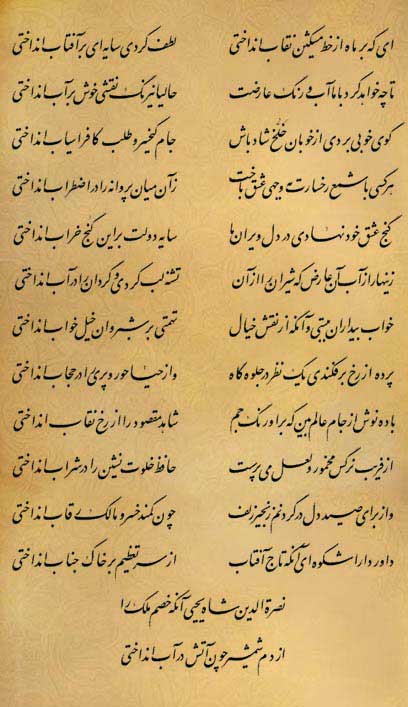 ای که بر ماه از خط مشکین نقاب انداختی لطف کردی سایه ای بر آفتاب انداختی
تا چه خواهد کرد با ما آب و رنگ عارضت حالیا نیرنگ نقشی خوش بر آب انداختی
گوی خوبی بردی از خوبان خلخ شاد باش جام کیخسرو طلب کافراسیاب انداختی
هر کسی با شمع رخسارت به وجهی عشق باخت زآن میان پروانه را در اضطراب انداختی
گنج عشق خود نهادی در دل ویران ما سایه دولت بر این کنج خراب انداختی
زینهار از آب آن عارض که شیران را از آن تشنه لب کردی و گردان را در آب انداختی
خواب بیداران ببستی وآنگه از نقش خیال تهمتی بر شبروان خیل خواب انداختی
پرده از رخ برفکندی یک نظر در جلوه گاه واز حیا حور و پری را در حجاب انداختی
باده نوش از جام عالم بین که بر اورنگ جم شاهد مقصود را از رخ نقاب انداختی
از فریب نرگس مخمور و لعل می پرست حافظ خلوت نشین را در شراب انداختی
واز برای صید دل در گردنم زنجیر زلف چون کمند خسرو مالک رقاب انداختی
داور دارا شکوه ای آنکه تاج آفتاب از سر تعظیم بر خاک جناب انداختی
نصرة الدین شاه یحیی آنکه خصم ملک را
از دم شمشیر چون آتش در آب انداختی